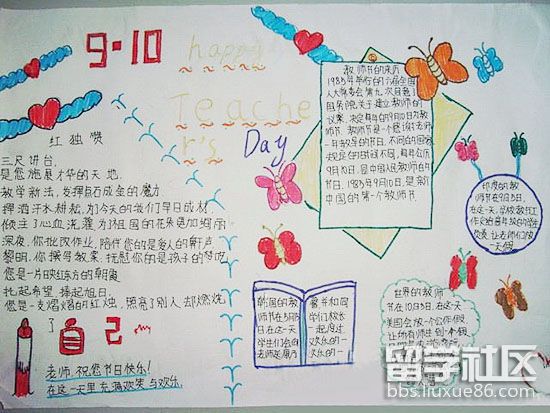 9·10
happy
Teache
r's Day
红烛赞
三尺讲台,
是您施展才华的天地.
教学新法,发挥点石成金的魔力
挥洒汗水耕耘,为今天的我们早日成材
倾注了心血浇灌,为祖国的花朵更加绚丽
深夜,你批改作业,陪伴您的是爱人的鼾声
黎明,你撰写教案,抚慰你的是孩子的梦呓
您是一片映红东方的朝霞
托起希望,捧起旭日,
您是一支熠熠的红烛,照亮了别人,却燃烧
了自己
老师,祝您节日快乐!
在这一天里充满欢笑与欢乐.
教师节的来历
1985年举行的六届全国
人大常委会第九次会议
国务院关于建立教师的
议案,决定每年的9月10日为教
师节.教师节是一个感谢老师
一年教导的节日,不同的国家
规定的时间不同,每年公历
9月10日,是中国人民教师的
节日.1985年9月10日,是新
中国的第一个教师节.
印度的教
师节在9月5日,
在这一天,
让老师们放
一天假
韩国的教
师节在5月15
日在这一天
学生们会向
老师送康乃
馨并和同
学们校长
一起度过
欢乐的一
世界的教师
节在10月5日,在这天
美国会放一个公休假,
让所有师生
留学社区
bbs.liuxue86.com